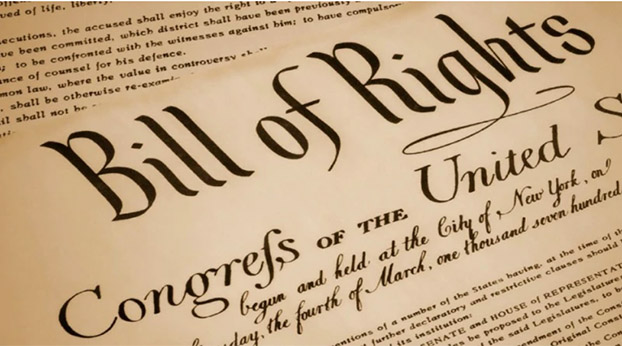 ved of life, liberty
ecutions, the accused shall enjoy the right to
ve been committed, which district shall have been previously
; to be confronted with the witnesses against him; to have compulsor
nce of counsel for his defence.
mon law, where the value in controversy shall
. shall be otherwise re-exami
il shall not be
Bill of Rights
Congreſs OF THE United S
begun and held at the City of New York, on
day, the fourth of March, one thousand seven hundred
entions of a number of the States having, at the time of th
further declaratory and restrictive clauses should
its institution:
SENATE and HOUSE of REPRESENTAT
be proposed to the Legislatures
the said Legislatures, to
endment of the Const